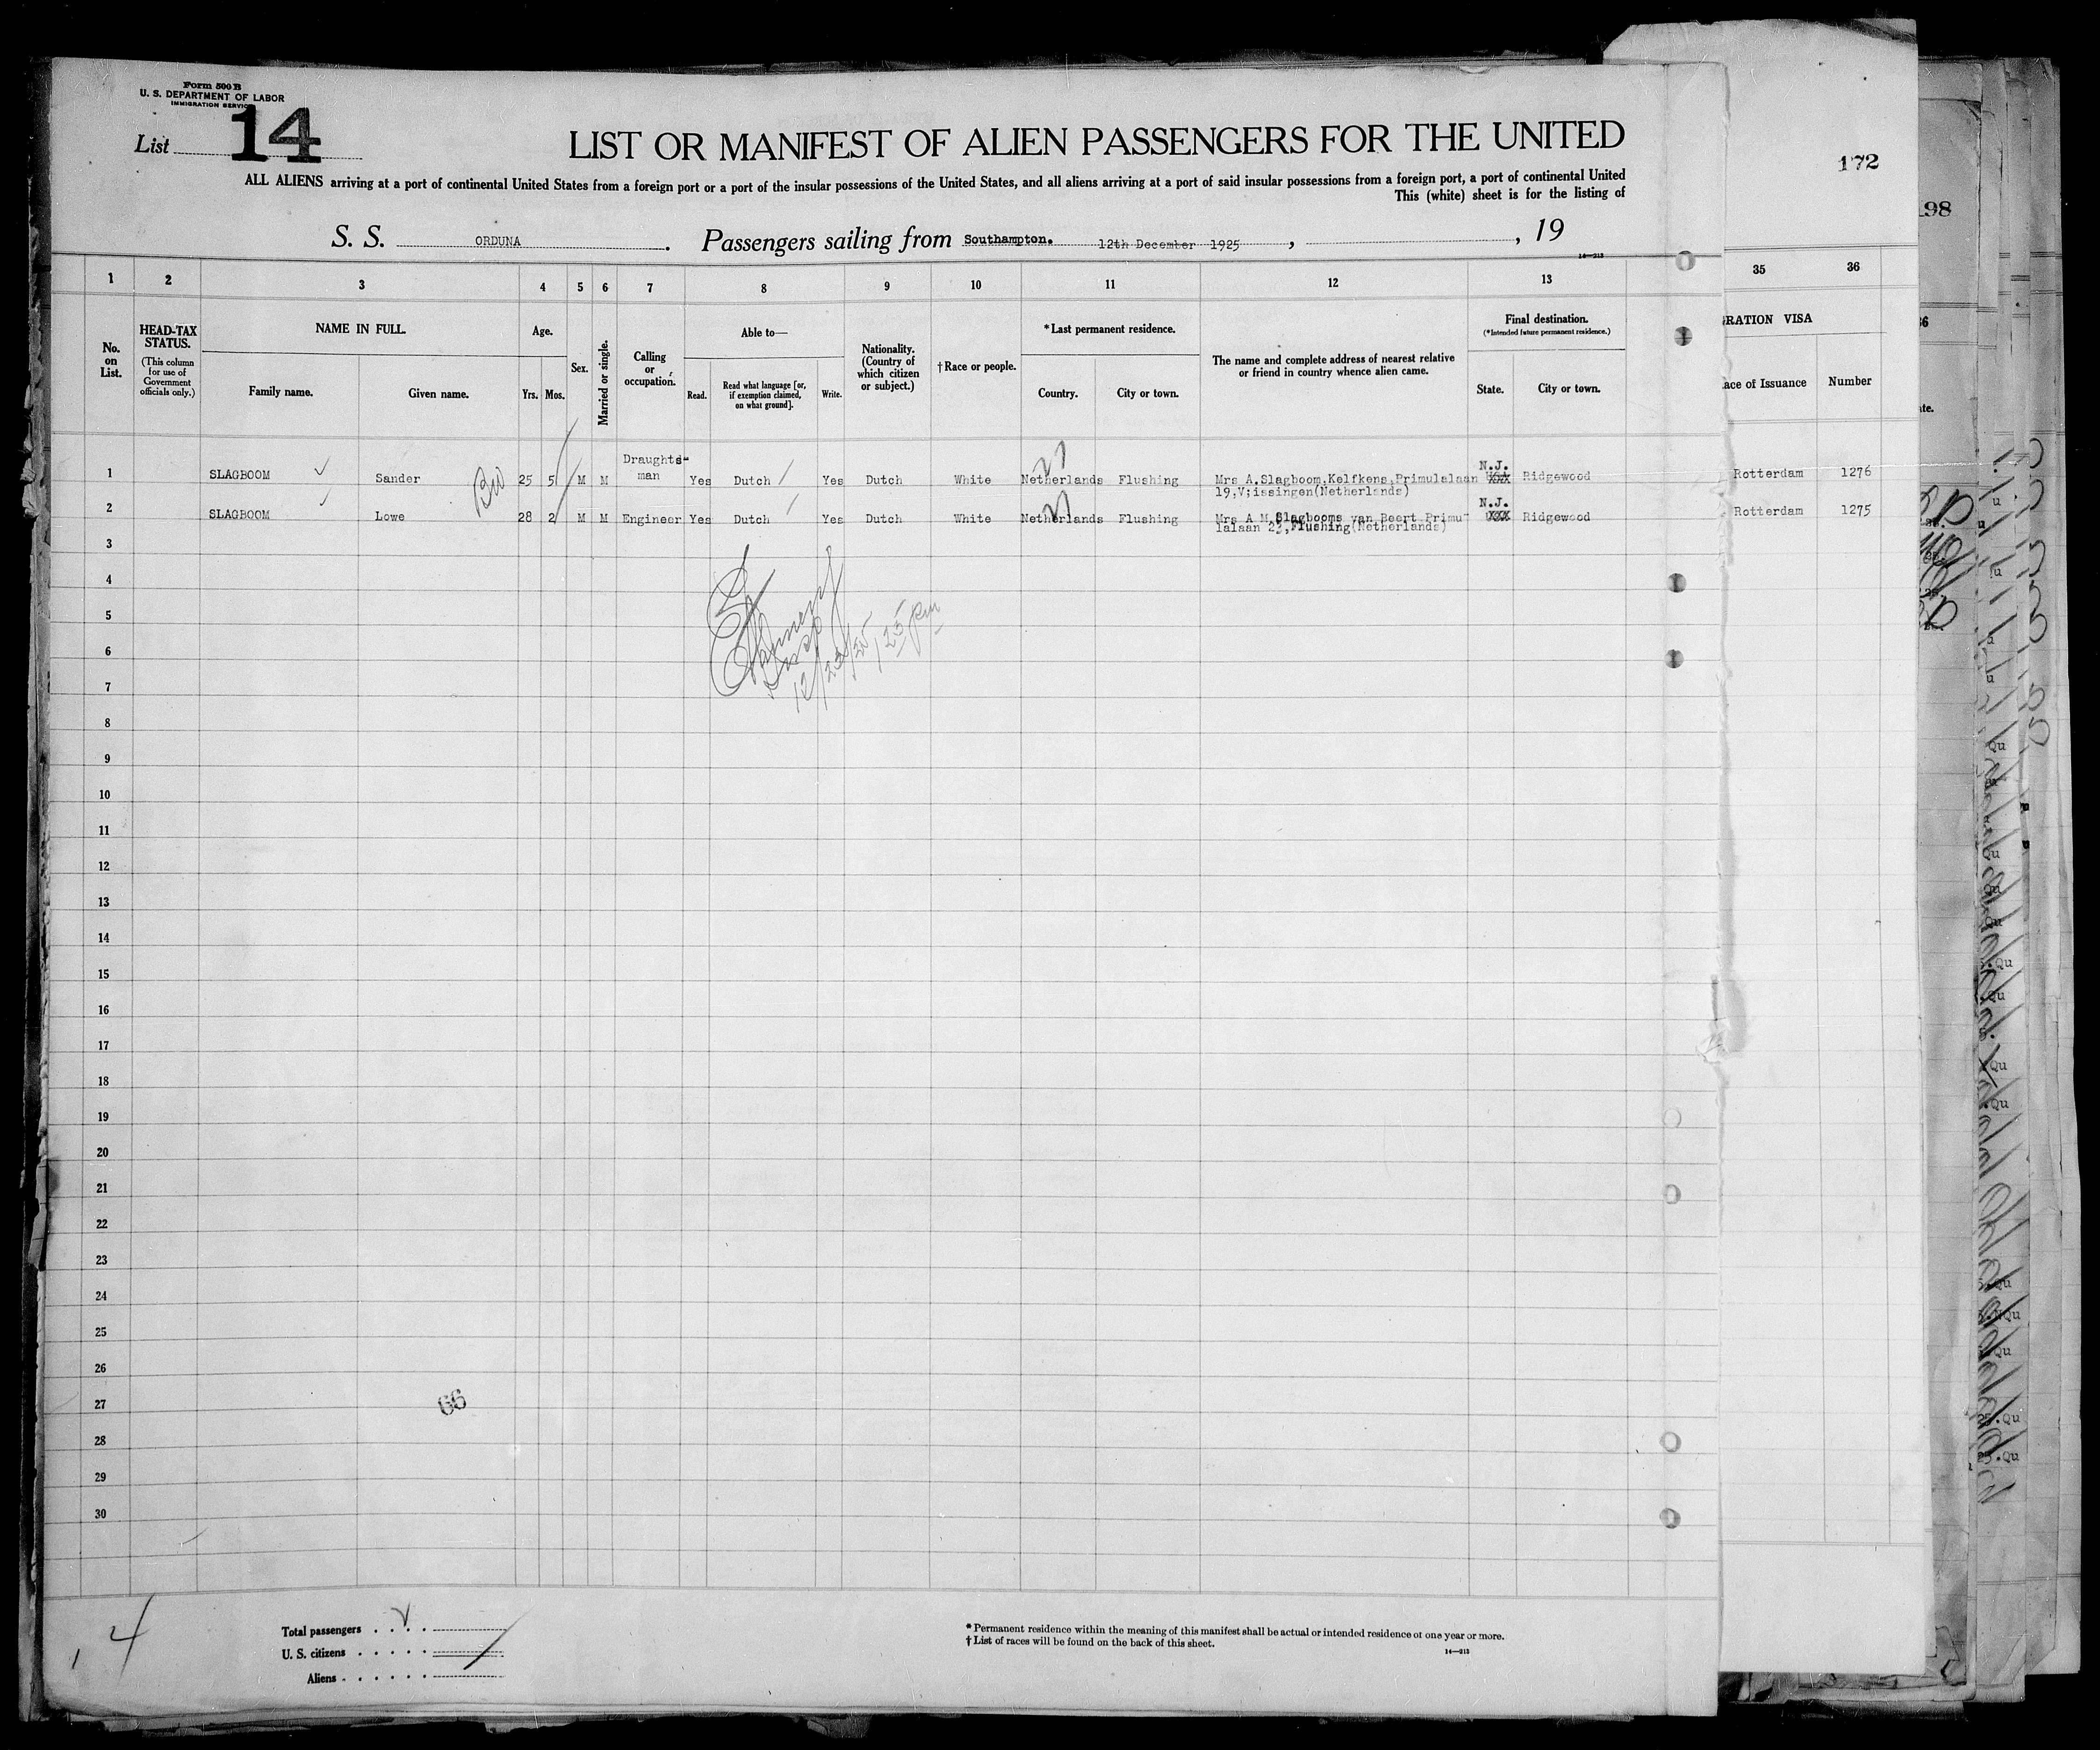 Form 500 B
U. S. DEPARTMENT OF LABOR
IMMIGRATION SERVICE
List 14
LIST OR MANIFEST OF ALIEN PASSENGERS FOR THE UNITED
172
ALL ALIENS arriving at a port of continental United States from a foreign port or a port of the insular possessions of the United States, and all aliens arriving at a port of said insular possessions from a foreign port, a port of continental United
This (white) sheet is for the listing of
198
S. S. ORDUNA. Passengers sailing from Southampton. 12th December 1925, , 19
16—213
1 2 3 4 5 6 7 8 9 10 11 12 13 35 36
No. on List.
HEAD-TAX STATUS.
(This column for use of Government officials only.)
NAME IN FULL.
Family name. Given name.
Age.
Yrs. Mos.
Sex.
Married or single.
Calling or occupation.
Able to—
Read. Read what language [or, if exemption claimed, on what ground]. Write.
Nationality. (Country of which citizen or subject.)
†Race or people.
*Last permanent residence.
Country. City or town.
The name and complete address of nearest relative or friend in country whence alien came.
Final destination.
(*Intended future permanent residence.)
State. City or town.
GRATION VISA
ace of Issuance Number
1 SLAGBOOM Sander 25 5 M M Draughts-man Yes Dutch Yes Dutch White Netherlands Flushing Mrs A.Slagboom,Kelfkens,Primulalaan N.J. Ridgewood Rotterdam 1276
19,V;issingen(Netherlands)
2 SLAGBOOM Lowe 28 2 M M Engineer Yes Dutch Yes Dutch White Netherlands Flushing Mrs A M Slagbooms van Beert Primu- N.J. Ridgewood Rotterdam 1275
lalaan 23,Flushing(Netherlands)
3
4
5
6
12/23/25 1 25 pm
7
8
9
10
11
12
13
14
15
16
17
18
19
20
21
22
23
24
25
26
27
66
28
29
30
14
Total passengers . . . .
U. S. citizens . . . . .
Aliens . . . . . .
* Permanent residence within the meaning of this manifest shall be actual or intended residence of one year or more.
† List of races will be found on the back of this sheet.
14—213